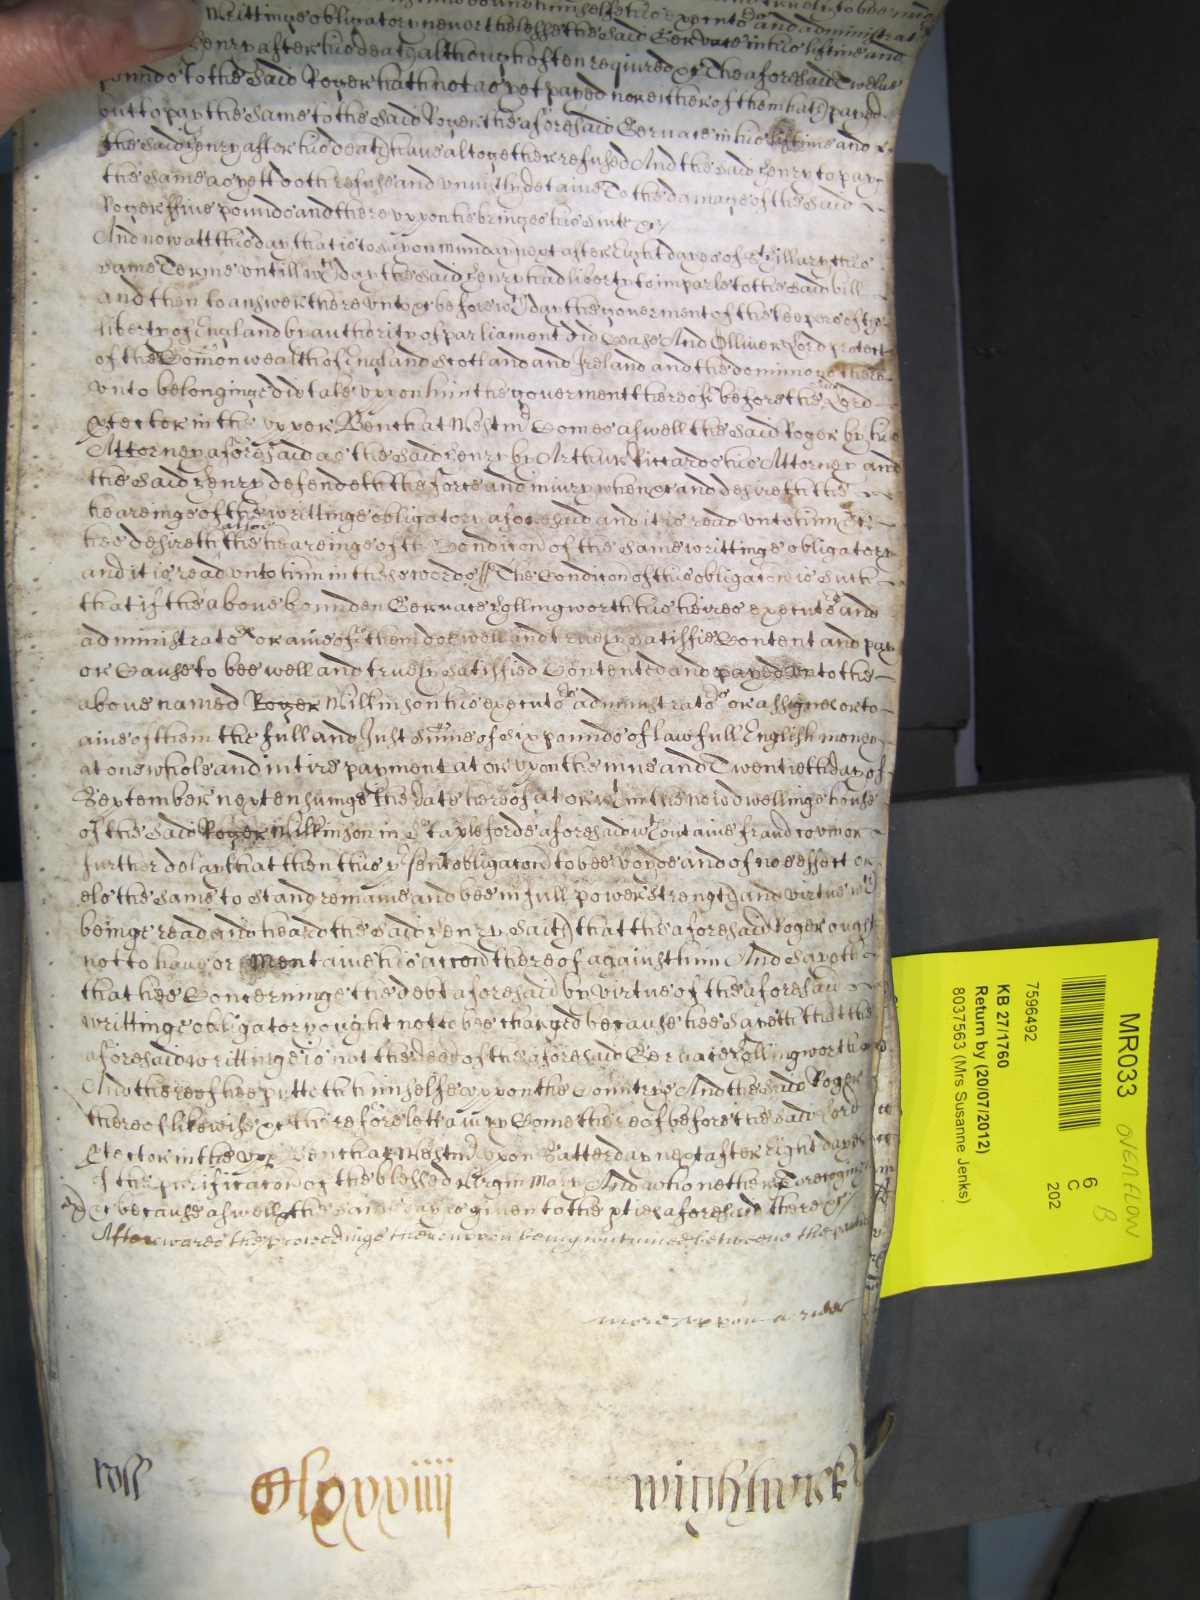 writtinge obligatory nevertheles the said Gervase in his liftime and
Henry after his death although often required &c The aforesaid Twelve
pounds to the said Roger hath not as yet payed nor either of them hath payed
but to pay the same to the said Roger the aforesaid Gervase in his liftime and
the said Henry after his death have altogether refused And the said Henry to pay
the same as yett doth refuse and uniustly detaine To the damage of the said
Roger ffive pounds and thereuppon he bringes his suite &c
And now att this day that is to say on munday next after Eight dayes of St Hillary this
same Terme untill wch day the said Henry had liberty to imparle to the said bill
and then to answer thereunto &c before wch day the goverment of the keepers of the
liberty of England by authority of parliament did cease And Olliver Lord protect
of the Comon wealth of England Scotland and Ireland and the dominions there
unto belonginge did take uppon him the goverment thereof before the said Lord
ptector in the upper Bench at Westmr Comes aswell the said Roger by his
Attorney aforesaid as the said Henry by Arthur Riccards his Attorney and
the said Henry defendeth the force and iniury when &c and desireth the
heareinge of the writtinge obligatory aforesaid and it is read unto him &c
hee desireth also the heareinge of the Condicon of the same writtinge obligatory
and it is read unto him in these words // The Condicon of this obligacon is such
that if the above bounden Gervase Hollingworth his heires executrs and
administratrs or anie of them doe well and truely satisfie Content and pay
or Cause to bee well and truely satisfied Contented and payed unto the
above named Roger Wilkinson his executrs administratrs or assignes or to
anie of them the full and Just summe of six pounds of lawfull English money
at one whole and intire payment at or uppon the nine and Twentieth day of
September next ensuinge the date hereof at or wthin the now dwellinge house
of the said Roger Wilkinson in Stapleforde aforesaid wthout anie fraud covin or
further delay that then this prsent obligacon to bee voyde and of noe effect or
els the same to stand remaine and bee in full power strength and virtue wch
beinge read and heard the said Henry saith that the aforesaid Roger ought
not to have or Mentaine his accon thereof against him And sayeth
that hee Concerninge the debt aforesaid by virtue of the aforesaid
writtinge obligatory ought not to bee charged because hee sayeth that the
aforesaid writtinge is not the deed of the aforesaid Gervase Hollingworth
And thereof hee putteth himselfe uppon the Countrye And the said Roger
thereof likewise &c therefore lett a iury Come thereof before the said Lord
ptector in the upp Bench at Westmr uppon Satterday next after eight dayes
of the purificacon of the blessed Virgin Mary And who nether
&c because aswell the same day is given to the pties aforesaid there &c
Afterwards the proceedings thereuppon being continued betweene the parties
more uppon a rider
ross
Clxxviiii
wightwick
MR033
7596492
KB 27/1760
Return by (20/07/2012)
8037563 (Mrs Susanne Jenks)
6
C
202
OVERFLOW
B